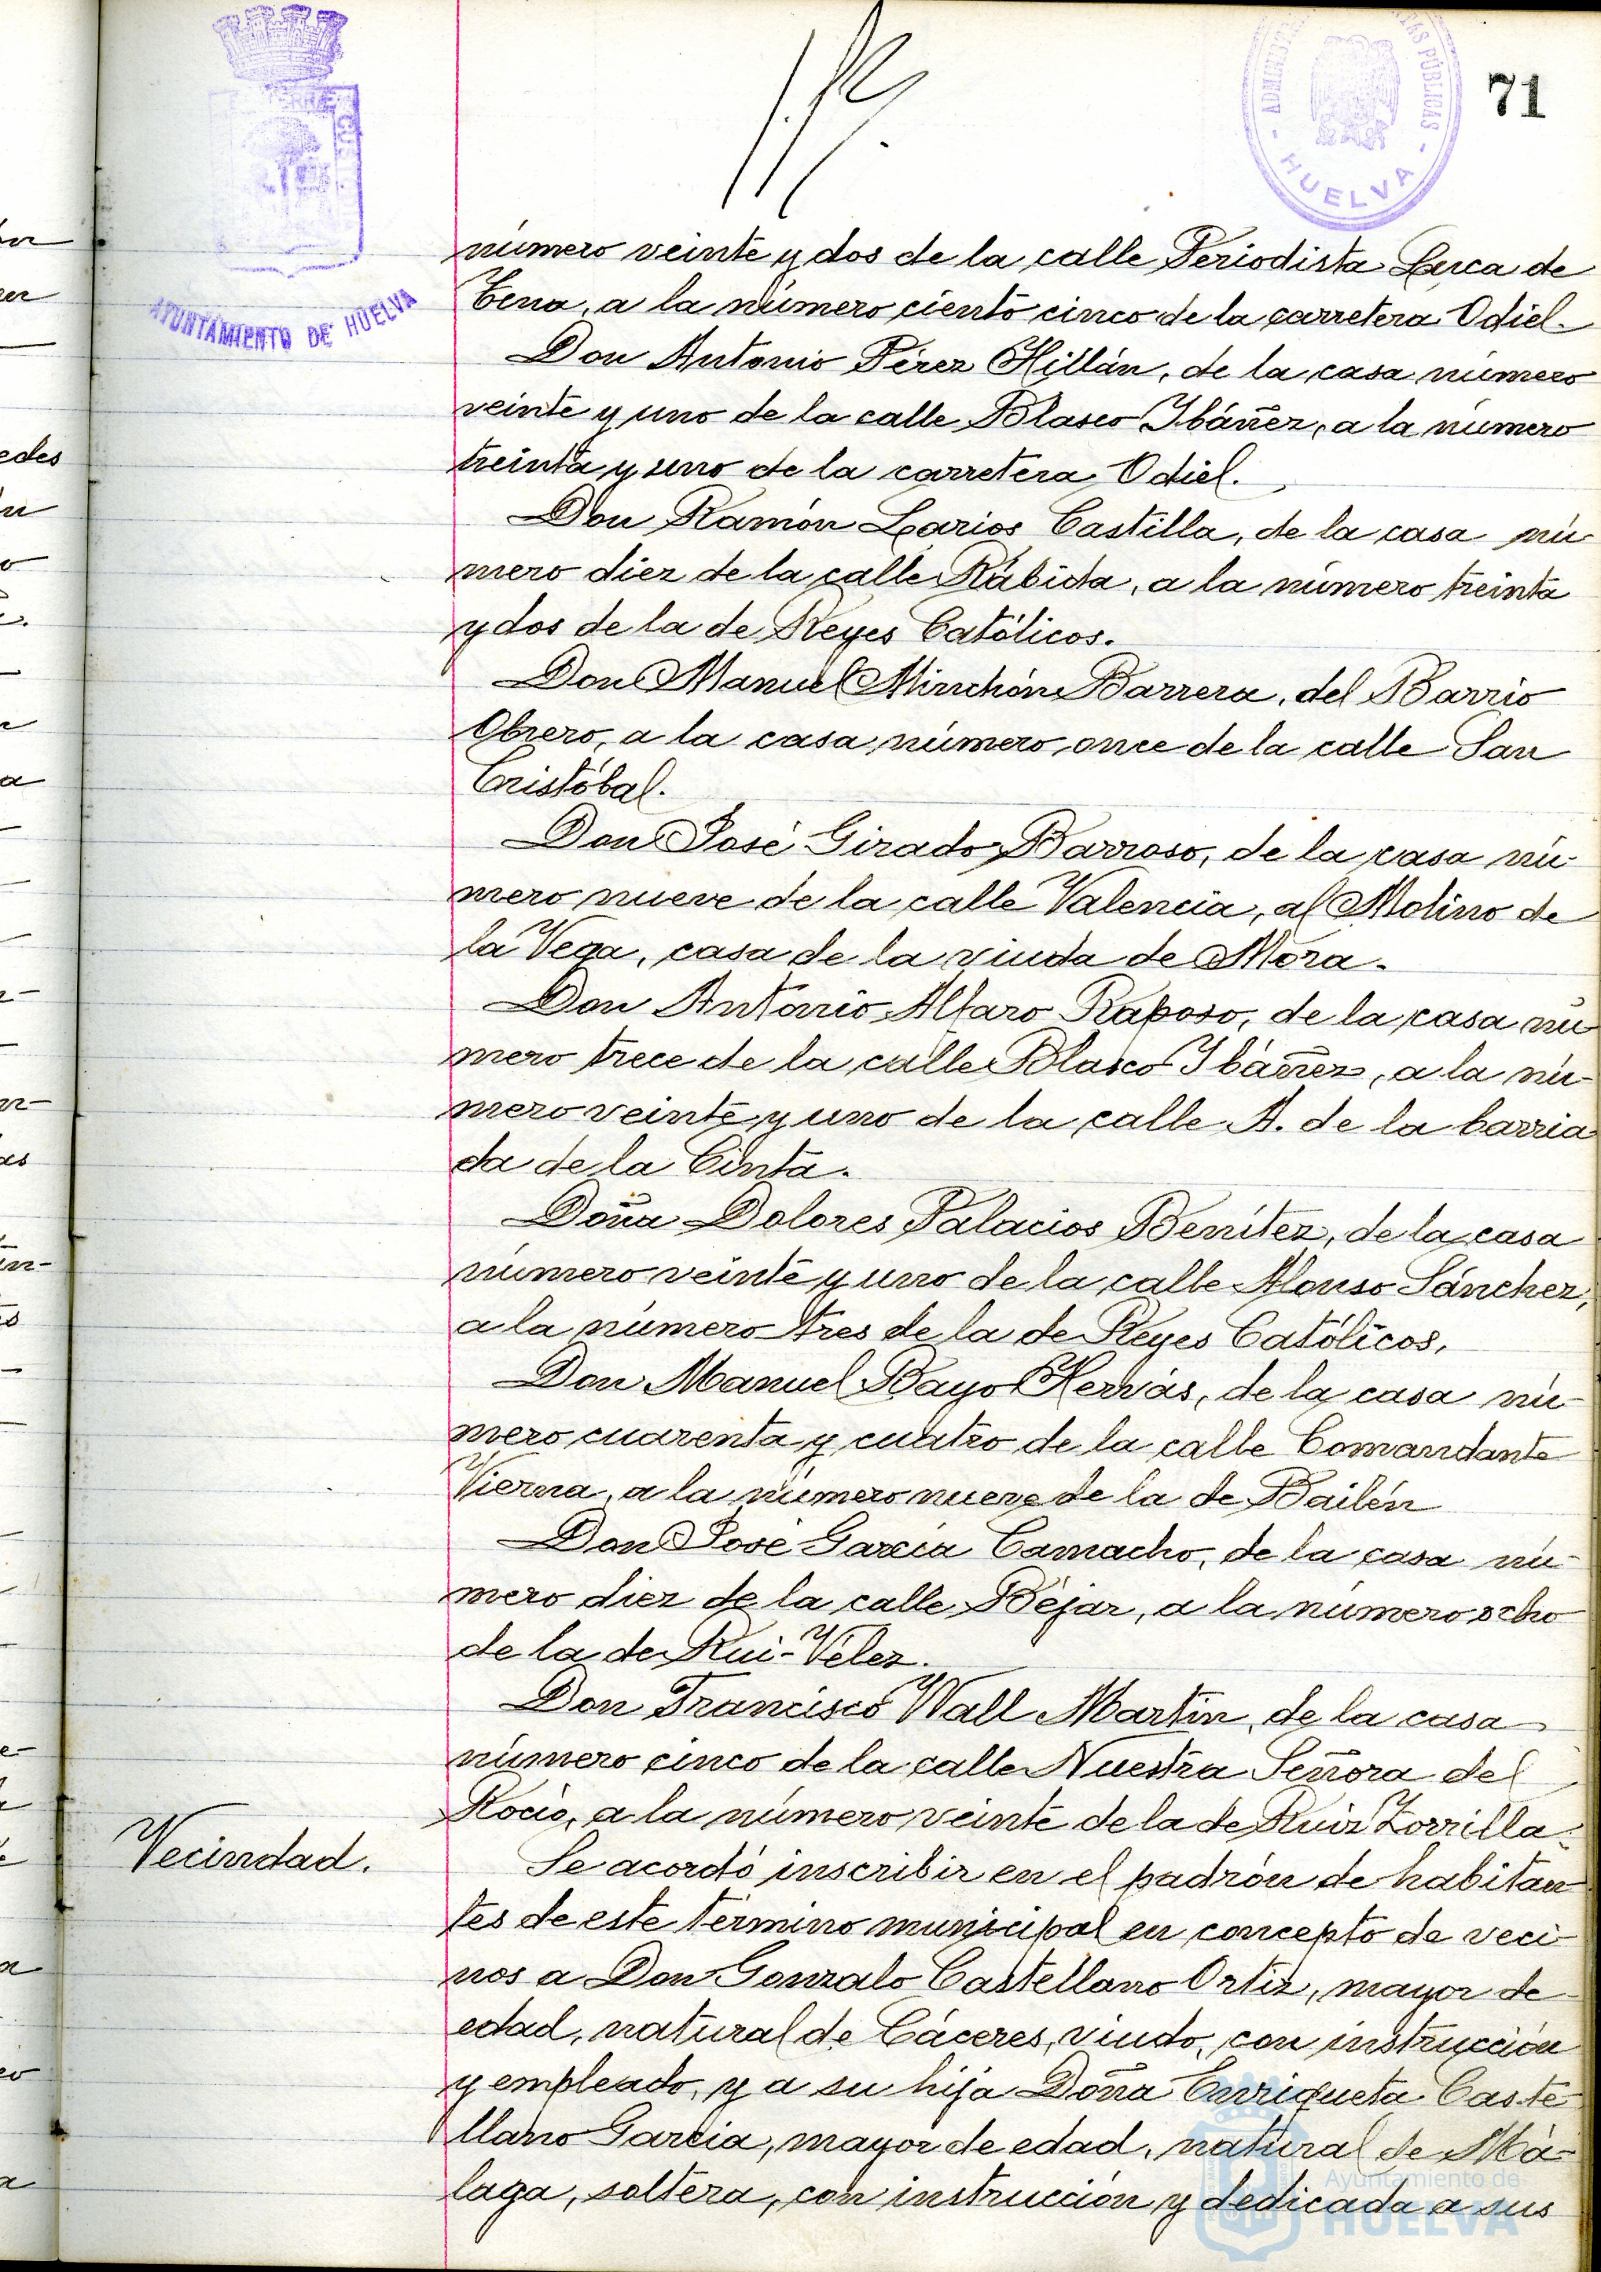 71
ADMINISTRA
AS PÚBLICAS
- HUELVA -
AYUNTAMIENTO DE HUELVA
número veinte y dos de la calle Periodista Luca de
Tena, a la número ciento cinco de la carretera Odiel.
Don Antonio Pérez Hillán, de la casa número
veinte y uno de la calle Blasco Ibáñez, a la número
treinta y uno de la carretera Odiel.
Don Ramón Larios Castilla, de la casa nú-
mero diez de la calle Rábida, a la número treinta
y dos de la de Reyes Católicos.
Don Manuel Minchón Barrera, del Barrio
Obrero, a la casa número once de la calle San
Cristóbal.
Don José Girado Barroso, de la casa nú-
mero nueve de la calle Valencia, al Molino de
la Vega, casa de la viuda de Mora.
Don Antonio Alfaro Raposo, de la casa nú
mero trece de la calle Blasco Ibáñez, a la nú-
mero veinte y uno de la calle A. de la barria
da de la Cinta.
Doña Dolores Palacios Benítez, de la casa
número veinte y uno de la calle Alonso Sánchez,
a la número tres de la de Reyes Católicos,
Don Manuel Bayo Hervás, de la casa nú-
mero cuarenta y cuatro de la calle Comandante
Vierna, a la número nueve de la de Bailén
Don José García Camacho, de la casa nú-
mero diez de la calle Béjar, a la número ocho
de la de Rui-Vélez.
Don Francisco Wall Martín, de la casa
número cinco de la calle Nuestra Señora del
Rocío, a la número veinte de la de Ruiz Zorrilla.
Vecindad.
Se acordó inscribir en el padrón de habitan
tes de este término municipal en concepto de veci-
nos a Don Gonzalo Castellano Ortiz, mayor de
edad, natural de Cáceres, viudo, con instrucción
y empleado, y a su hija Doña Enriqueta Caste-
llano García, mayor de edad, natural de Má-
laga, soltera, con instrucción y dedicada a sus
Ayuntamiento de
HUELVA